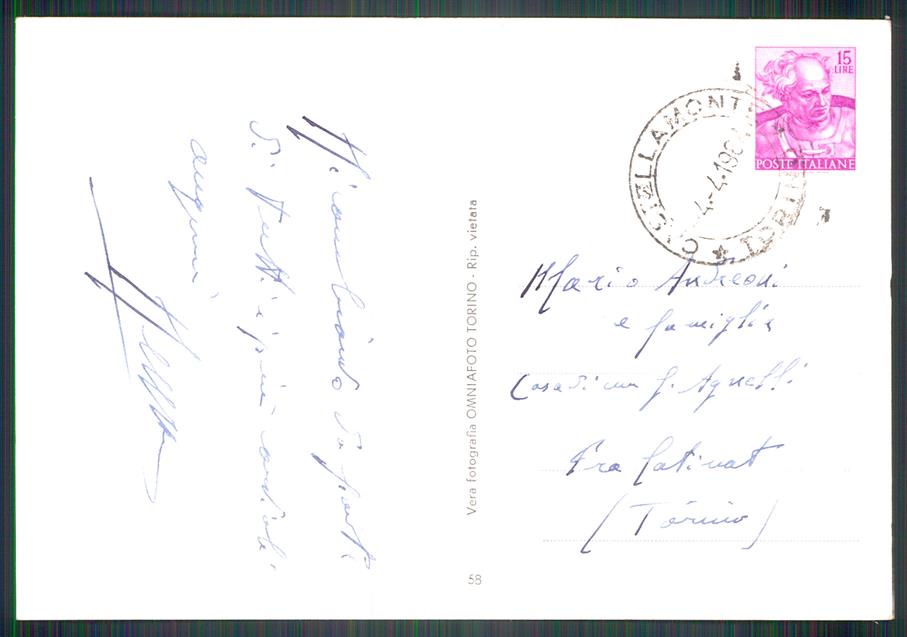 Ricambiando da parte
di tutti i più cordiali
auguri
Vera fotografia OMNIAFOTO TORINO - Rip. vietata
58
15
LIRE
POSTE ITALIANE
CASTELLAMONTE
4.-4.196
TORINO
Mario Andreoni
e famiglia
Casa di cura G. Agnelli
Pra Catinat
(Torino)